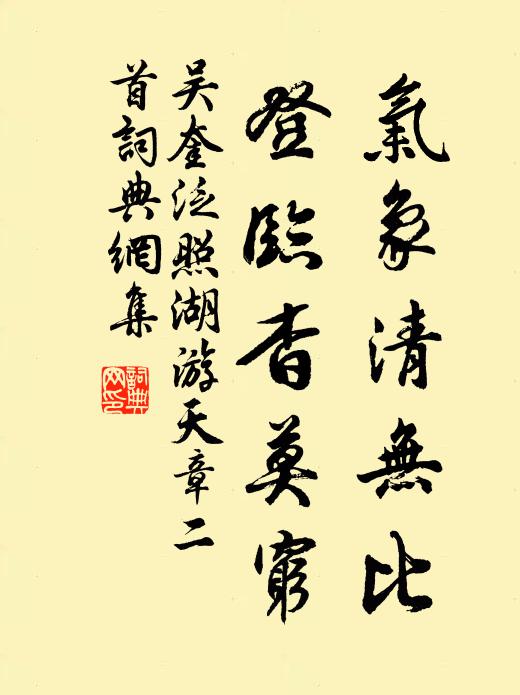 氣象清無比
登臨杳莫窮
吳奎泛照湖游天章二
首詞典網集
詞典
网印